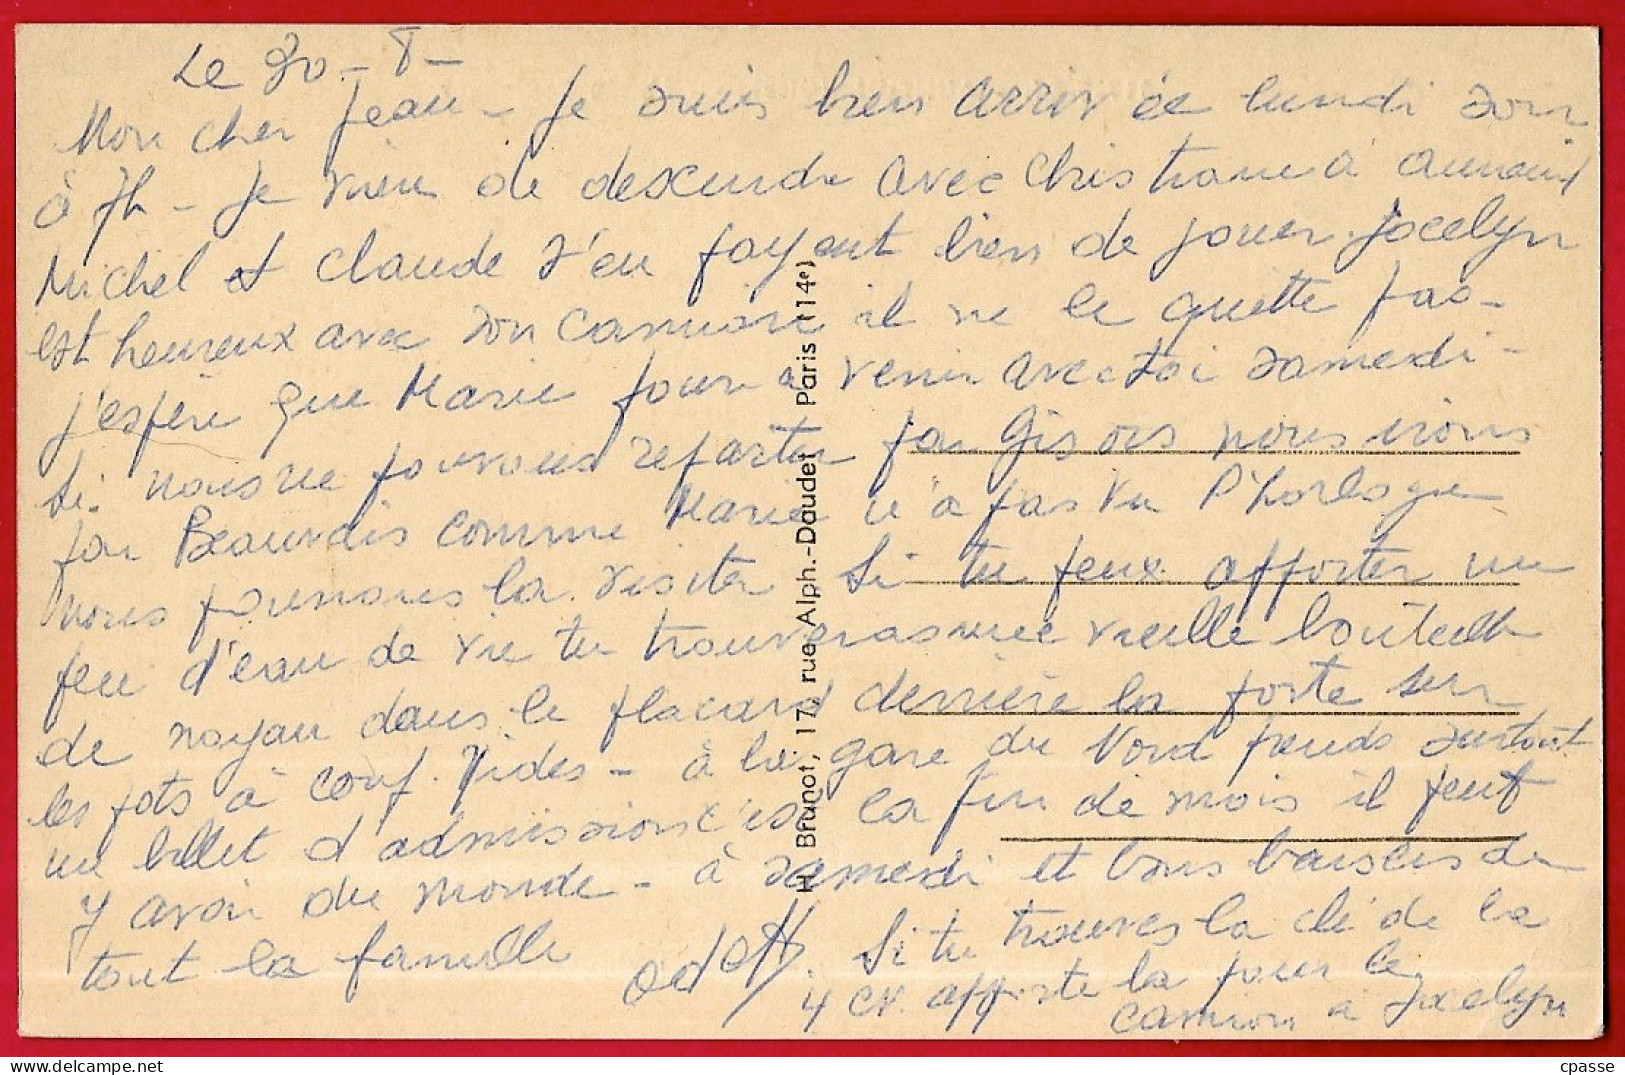 Le 30-8-
Mon cher Jean - Je suis bien arrivée lundi soir
à 7h - Je vien de descendre avec Christiane à
Michel et Claude s'en payent bien de jouer. Jocelyn
est heureux avec son camion il ne le quette pas -
j'espère que Marie poura venir avec toi samedi -
Si nous ne pouvons repartir par Gisors nous irons
par Beauvais comme Marie n'a pas vu l'horloge
nous pourrons la visiter Si tu peux apporter un
peu d'eau de vie tu trouveras une vieille bouteille
de noyau dans le placard derrière la porte sur
les pots à conf. vides - à la gare du Nord prends surtout
un billet d'admission c'est la fin de mois il peut
y avoir du monde - à samedi et bons baisers de
tout la famille Odette
Si tu trouves la clé de la
4 CV. apporte la pour le
camion à Jocelyn
H. Brunot, 17, rue Alph.-Daudet Paris (14e)
cpasse